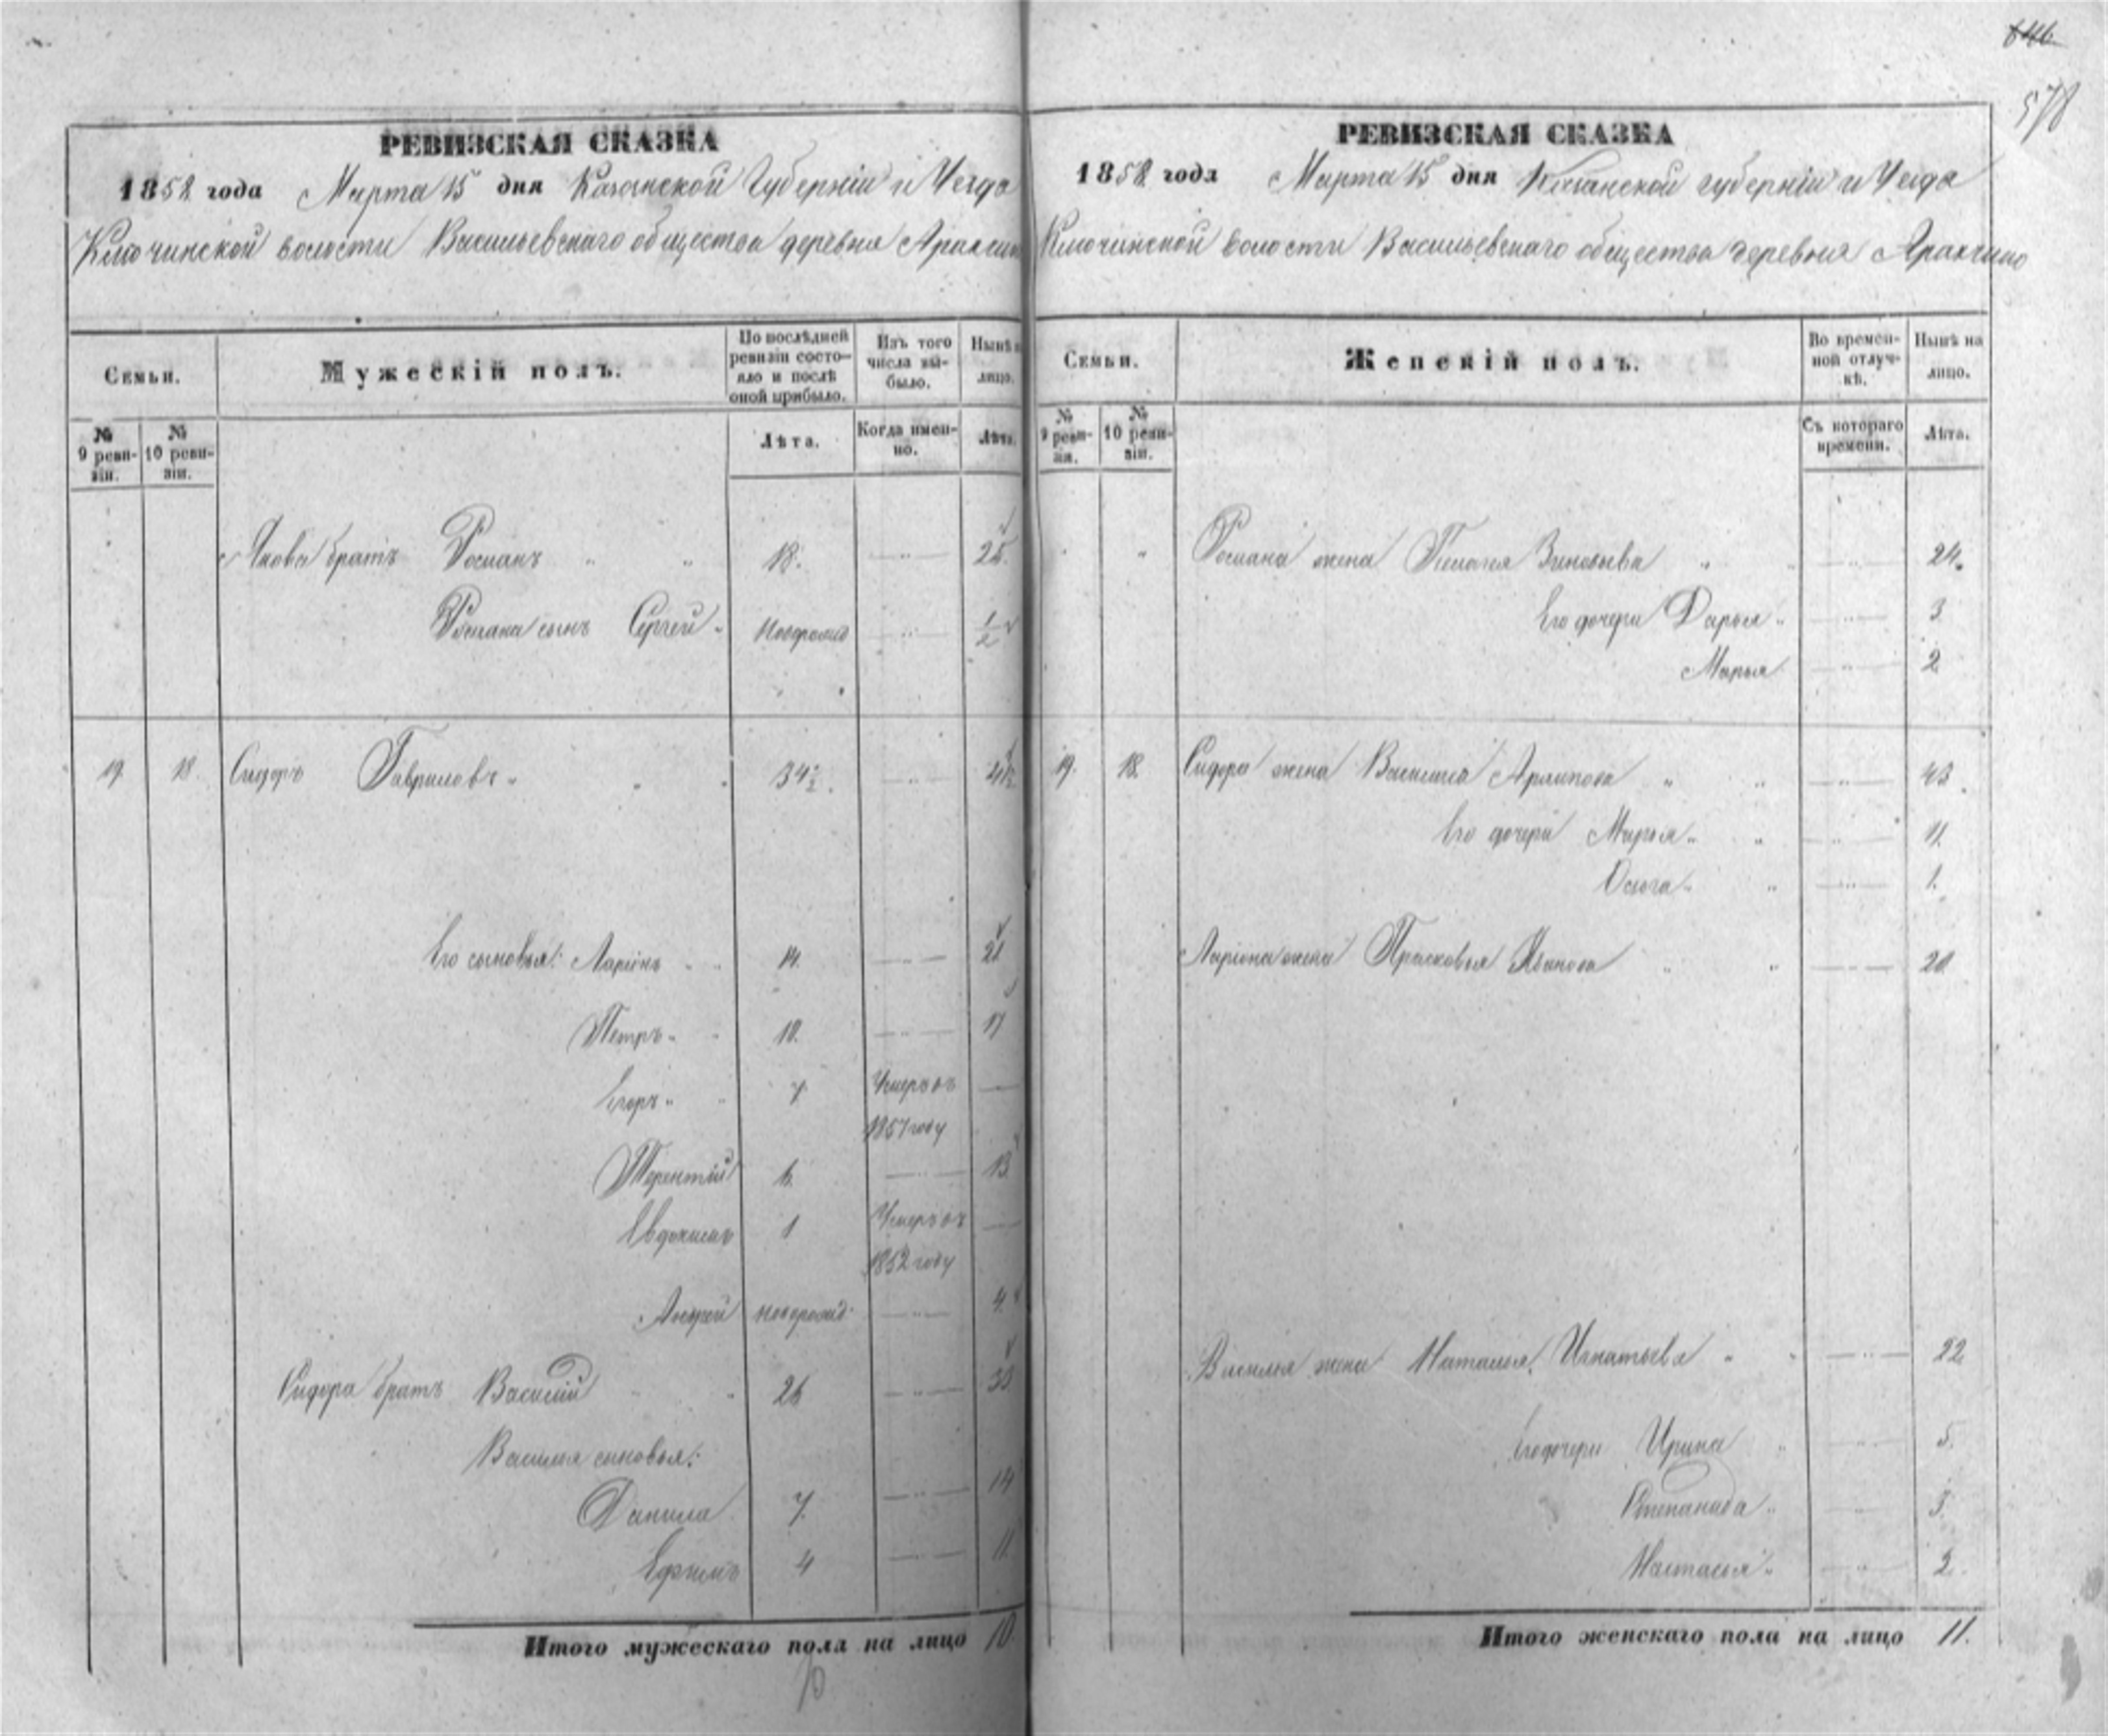 646
578
РЕВИЗСКАЯ СКАЗКА
1858 года Марта 15 дня Казанской Губерніи и Уезда
Ключинской волости Васильевскаго общества деревня Аракчин
Семьи.
Мужескій полъ.
По послѣдней ревизіи состояло и послѣ оной прибыло.
Изъ того числа выбыло.
Нынѣ на лицо.
№ 9 ревизіи.
№ 10 ревизіи.
Лѣта.
Когда именно.
Лѣта.
Якова братъ Романъ 18. 25.
Романа сынъ Сергей новорожд 1/2
19. 18. Сидоръ Гавриловъ 34 1/2. 41 1/2
Его сыновья: Ларіонъ 14. 21
Петръ 10. 17
Егоръ 7. Умеръ въ
1857 году
Терентій 6. 13
Евдокимъ 1 Умеръ въ
1852 году
Андрей новорожд. 4.
Сидора братъ Василій 26 33
Василья сыновья:
Данила 7. 14
Ефимъ 4 11.
Итого мужескаго пола на лицо 10.
10
РЕВИЗСКАЯ СКАЗКА
1858 года Марта 15 дня Казанской губерніи и Уезда
Ключинской волости Васильевскаго общества деревня Аракчино
Семьи.
Женскій полъ.
Во временной отлучкѣ.
Нынѣ на лицо.
№ 9 ревизіи.
№ 10 ревизіи.
Съ котораго времени.
Лѣта.
Романа жена Зиновьева 24.
Его дочери Дарья 3
Марья 2
19. 18. Сидора жена Василиса Архипова 43
Его дочери Марья 11.
Ольга 1.
Ларіона жена Прасковья Иванова 20.
Василья жена Наталья Игнатьева 22
Его дочери Ирина 5.
Степанида 3.
Настасья 2.
Итого женскаго пола на лицо 11.